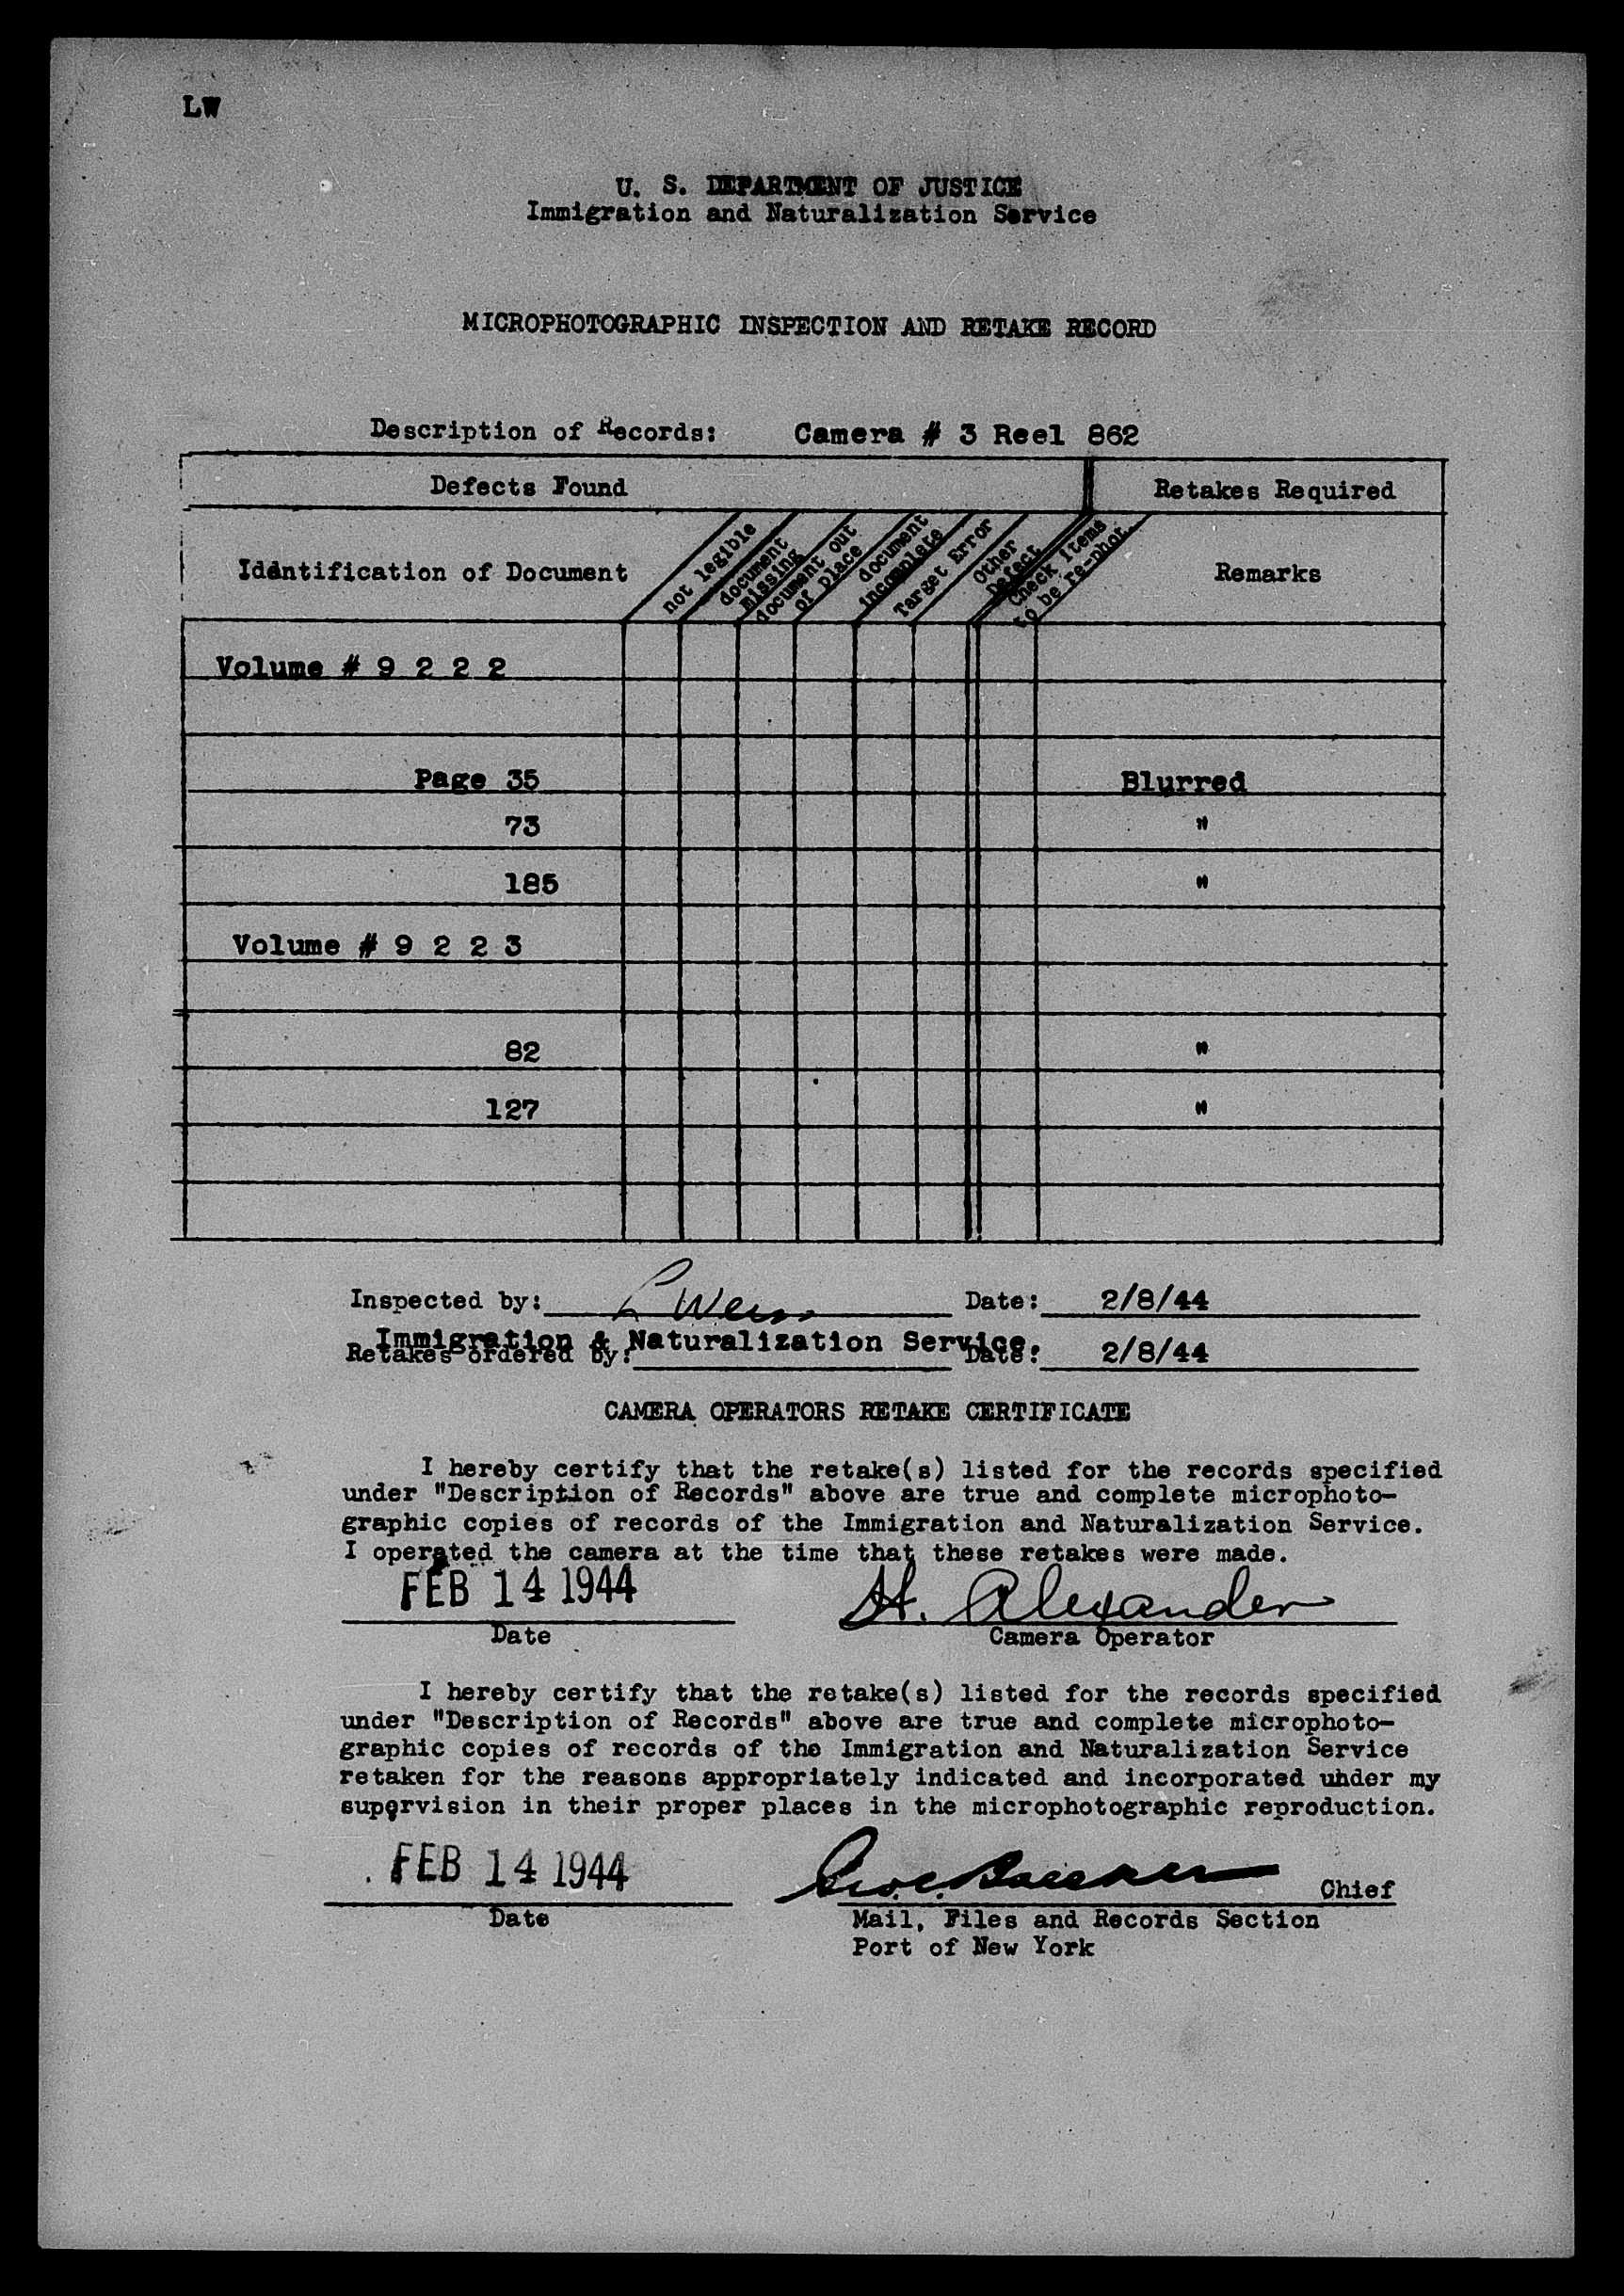 LW
U. S. DEPARTMENT OF JUSTICE
Immigration and Naturalization Service
MICROPHOTOGRAPHIC INSPECTION AND RETAKE RECORD
Description of Records: Camera # 3 Reel 862
Defects Found Retakes Required
Idéntification of Document
not legible
document missing
document out of place
document incomplete
Target Error
Other Defect
Check Items to be re-phot.
Remarks
Volume # 9 2 2 2
Page 35 Blurred
73 "
185 "
Volume # 9 2 2 3
82 "
127 "
Inspected by: L Weiss Date: 2/8/44
Immigration & Naturalization Service.
Retakes ordered by: Date: 2/8/44
CAMERA OPERATORS RETAKE CERTIFICATE
I hereby certify that the retake(s) listed for the records specified
under "Description of Records" above are true and complete microphoto-
graphic copies of records of the Immigration and Naturalization Service.
I operated the camera at the time that these retakes were made.
FEB 14 1944 H. Alexander
Date Camera Operator
I hereby certify that the retake(s) listed for the records specified
under "Description of Records" above are true and complete microphoto-
graphic copies of records of the Immigration and Naturalization Service
retaken for the reasons appropriately indicated and incorporated uhder my
supervision in their proper places in the microphotographic reproduction.
FEB 14 1944 Chief
Date Mail, Files and Records Section
Port of New York